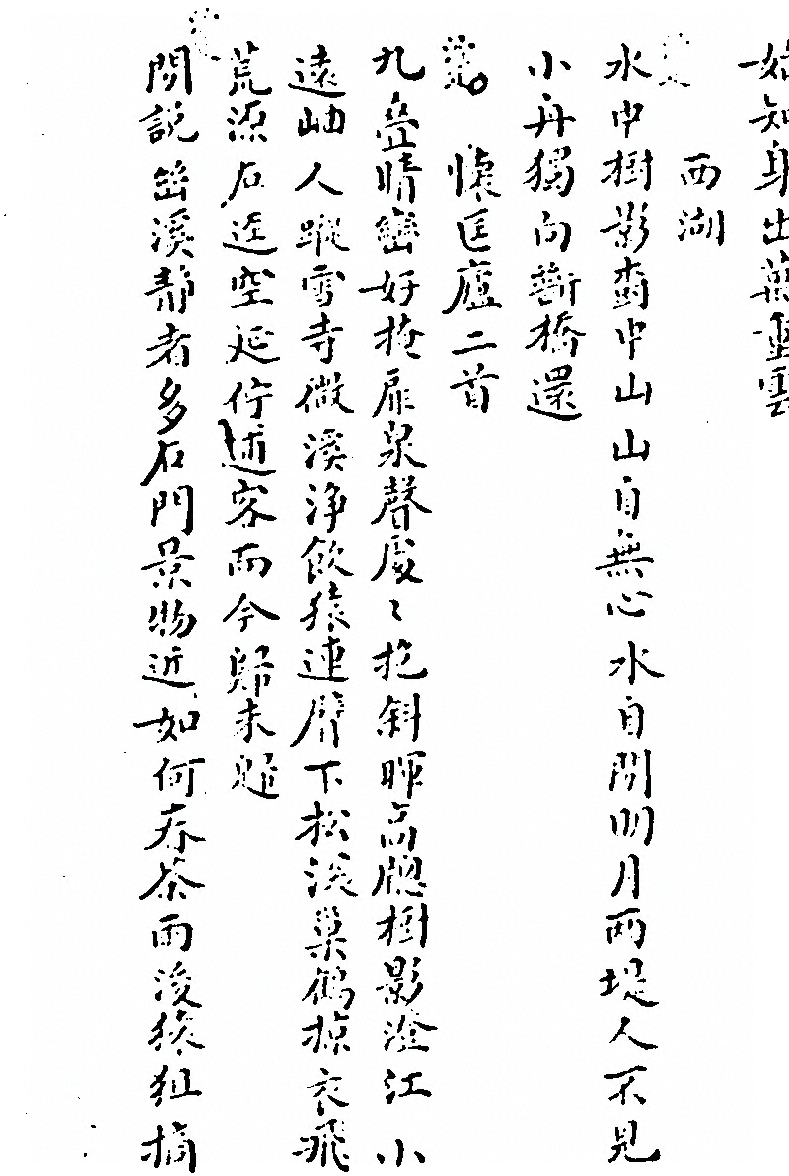 始知身出萬重雲
西湖
水中樹影畫中山山自無心水自閒明月兩堤人不見
小舟獨向斷橋還
懷匡廬二首
九疊晴巒好掩扉泉聲處〻抱斜暉高牕樹影澄江小
遠岫人蹤雪寺微溪淨飲猿連臂下松深巢鶴掠衣飛
荒源石逕空延佇逋客而今歸未歸
聞說幽溪靜者多石門景物近如何春茶雨後猿狙摘